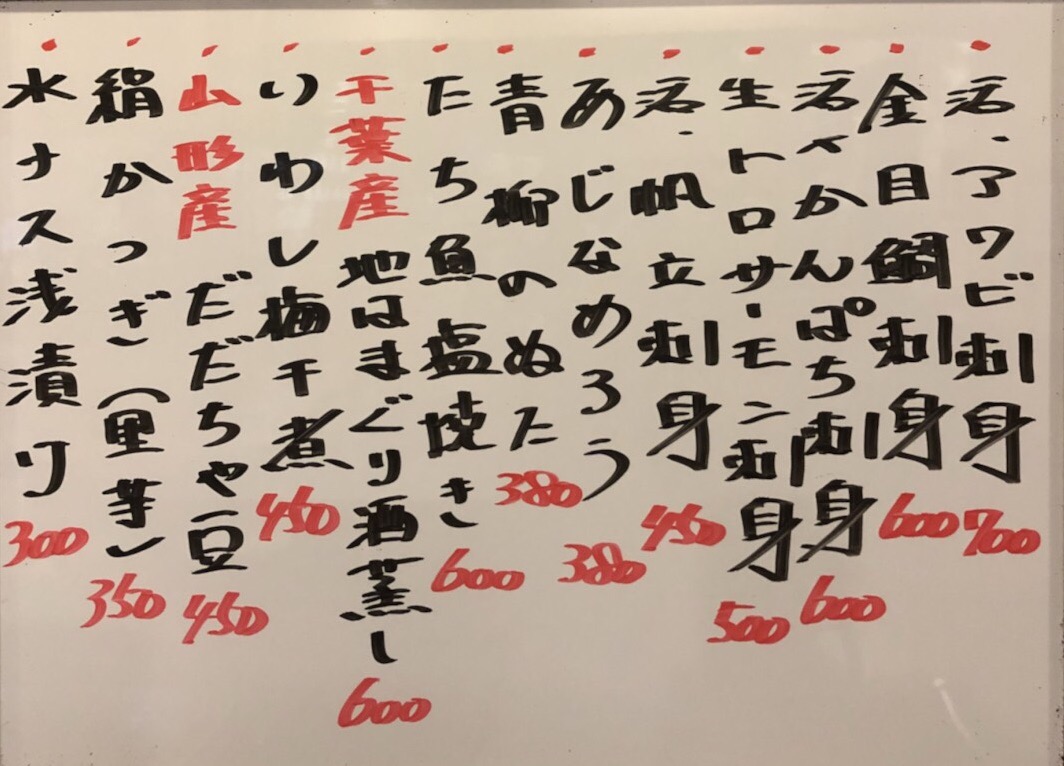 活、アワビ刺身 700
金目鯛刺身 600
活〆かんぱち刺身 600
生トロサーモン刺身 500
活、帆立刺身 450
あじなめろう 380
青柳のぬた 380
たち魚塩焼き 600
千葉産地はまぐり酒蒸し 600
いわし梅干煮 450
山形産だだちゃ豆 450
絹かつぎ(里芋) 350
水ナス浅漬り 300